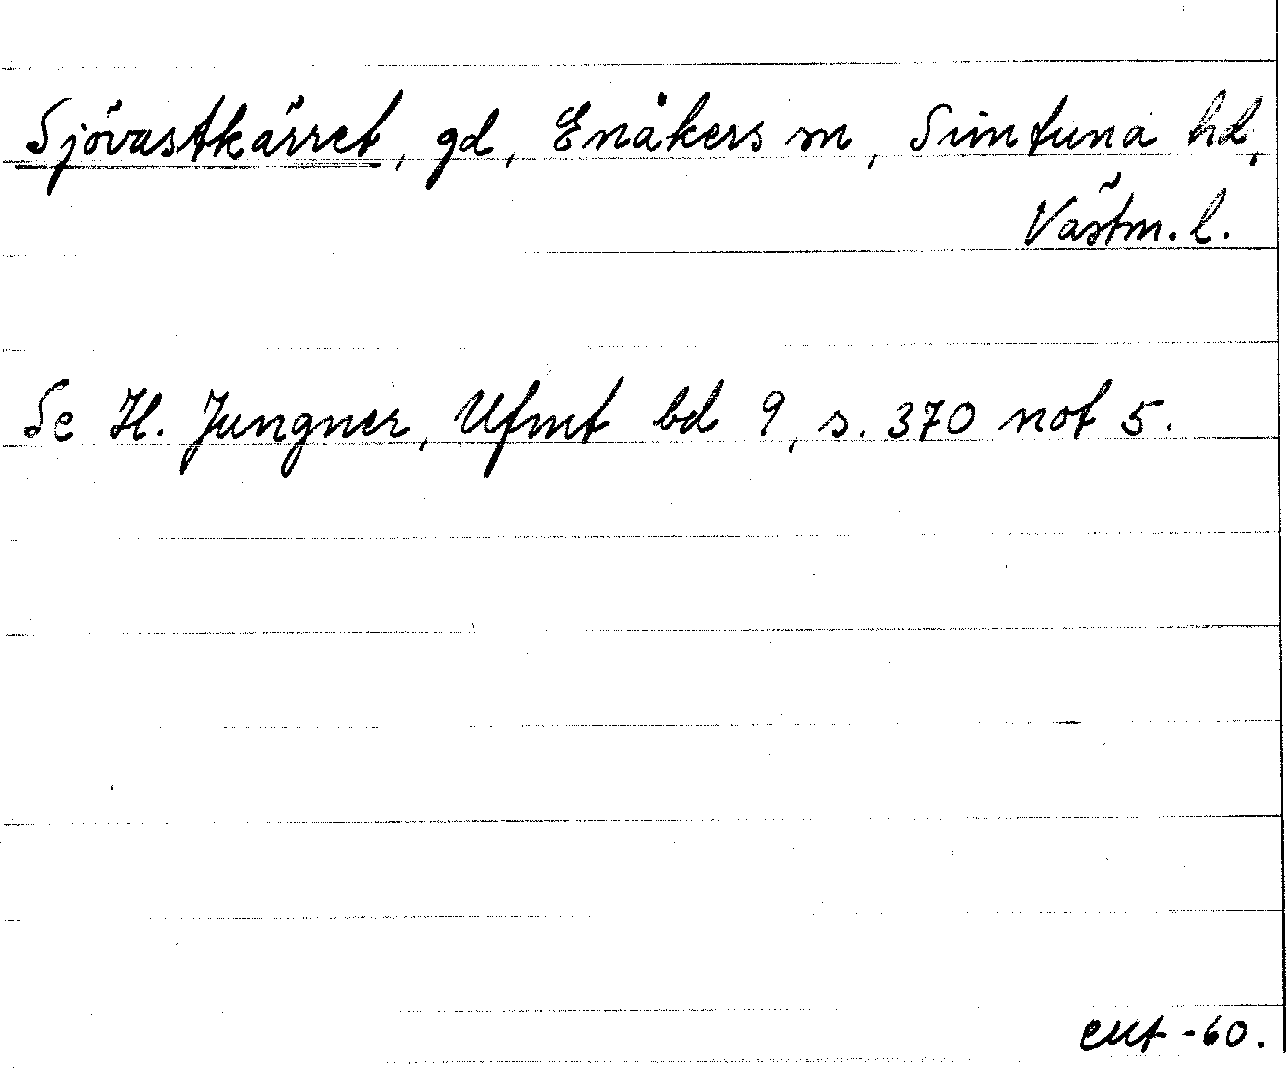 Sjövastkärret, gd, Enåkers sn, Simtuna hd,
Västm. l.
Se H. Jungner, Ufmt bd 9, s. 370 not 5.
-60.